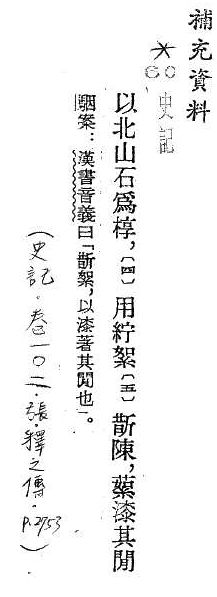 補充資料
*60 史記
以北山石爲椁,〔四〕用紵絮〔五〕斮陳,蕠漆其閒
駰案:漢書音義曰「斮絮,以漆著其閒也」。
(史記.卷一〇二.張.釋之傳.P.2753)